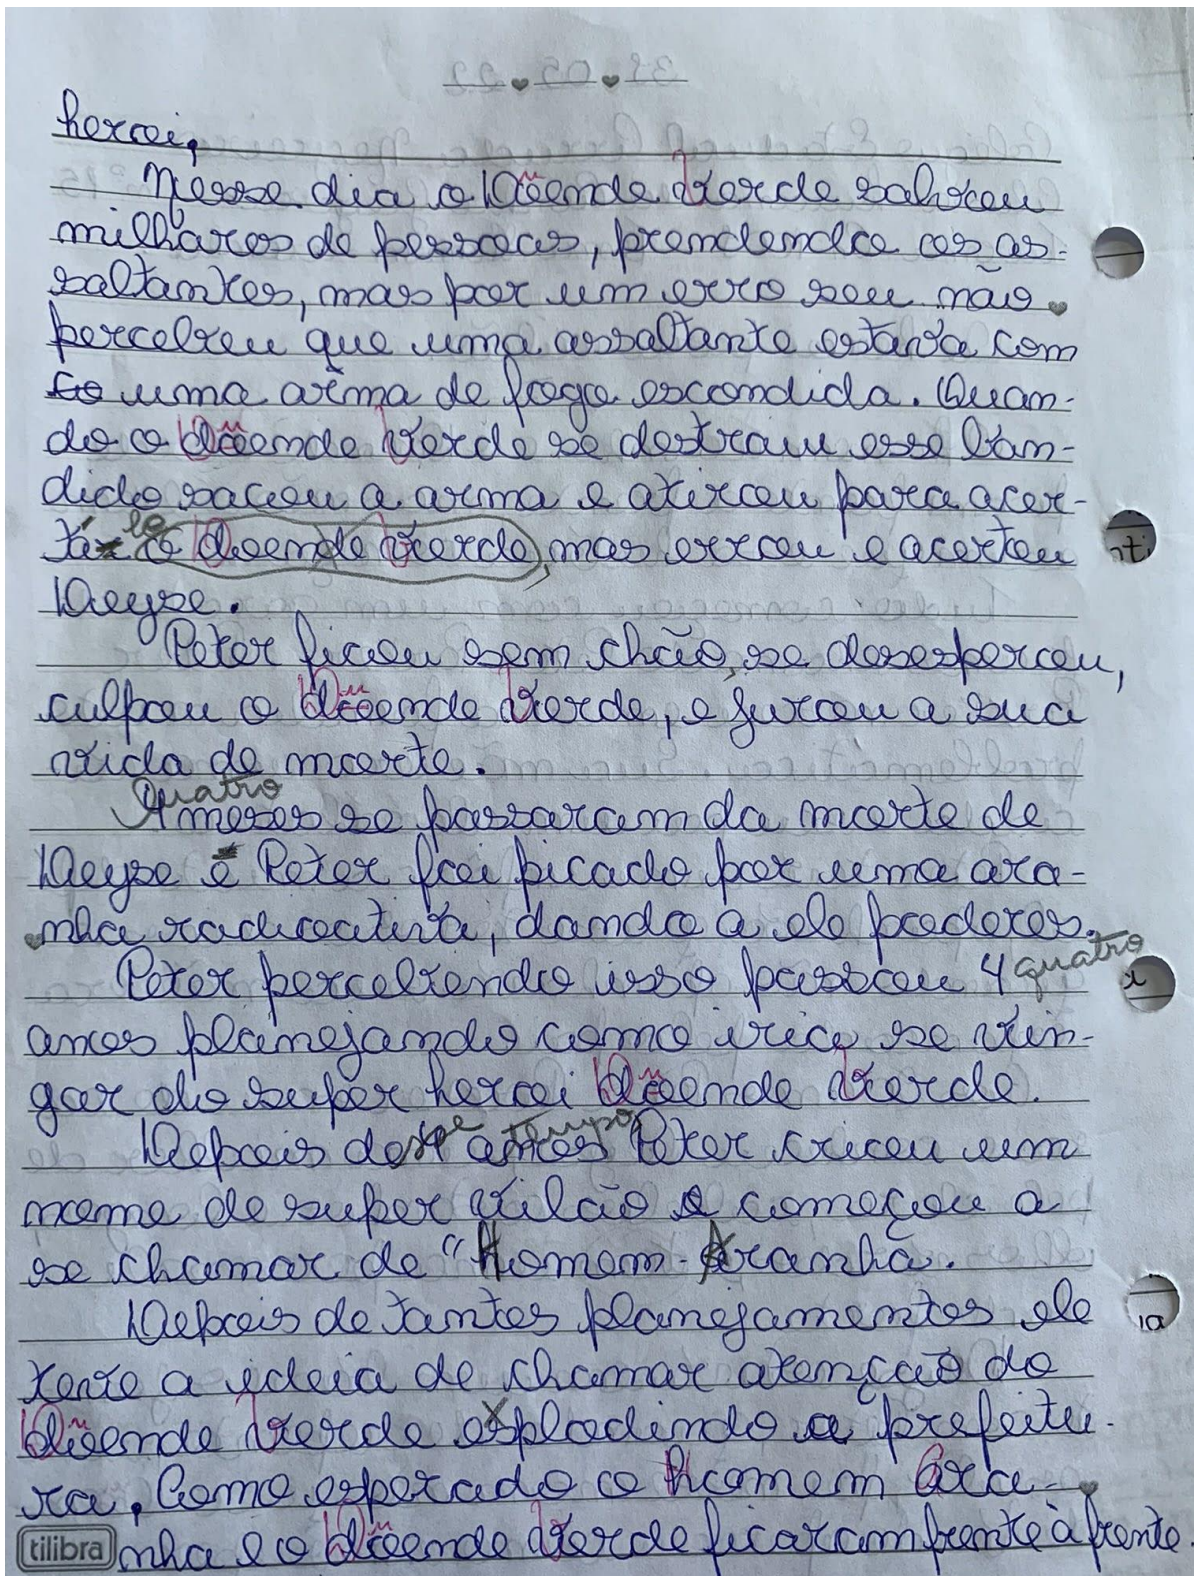 heroi,
Nesse dia o Duende Verde salvou
milhares de pessoas, prendendo os as-
saltantes, mas por um erro seu não
percebeu que uma assaltante estava com
uma arma de fogo escondida. Quan-
do o Duende Verde se destraiu esse ban-
dido sacou a arma e atirou para acer-
tá-lo o doende verde, mas errou e acertou
Deyse.
Peter ficou sem chão, se desesperou,
culpou o Duende Verde, e jurou a sua
vida de morte.
Quatro
4 meses se passaram da morte de
Deyse e Peter foi picado por uma ara-
nha radioativa, dando a ele poderes.
Peter percebendo isso passou 4 quatro
anos planejando como iria se vin-
gar do super heroi Duende Verde.
tempo
Depois desse anos Peter criou um
nome de super vilão e começou a
se chamar de "Homem-Aranha.
Depois de tantos planejamentos ele
teve a ideia de chamar atenção do
Duende Verde explodindo a prefeitu-
ra. Como esperado o Homem Ara-
nha e o Duende Verde ficaram frente à frente.
tilibra